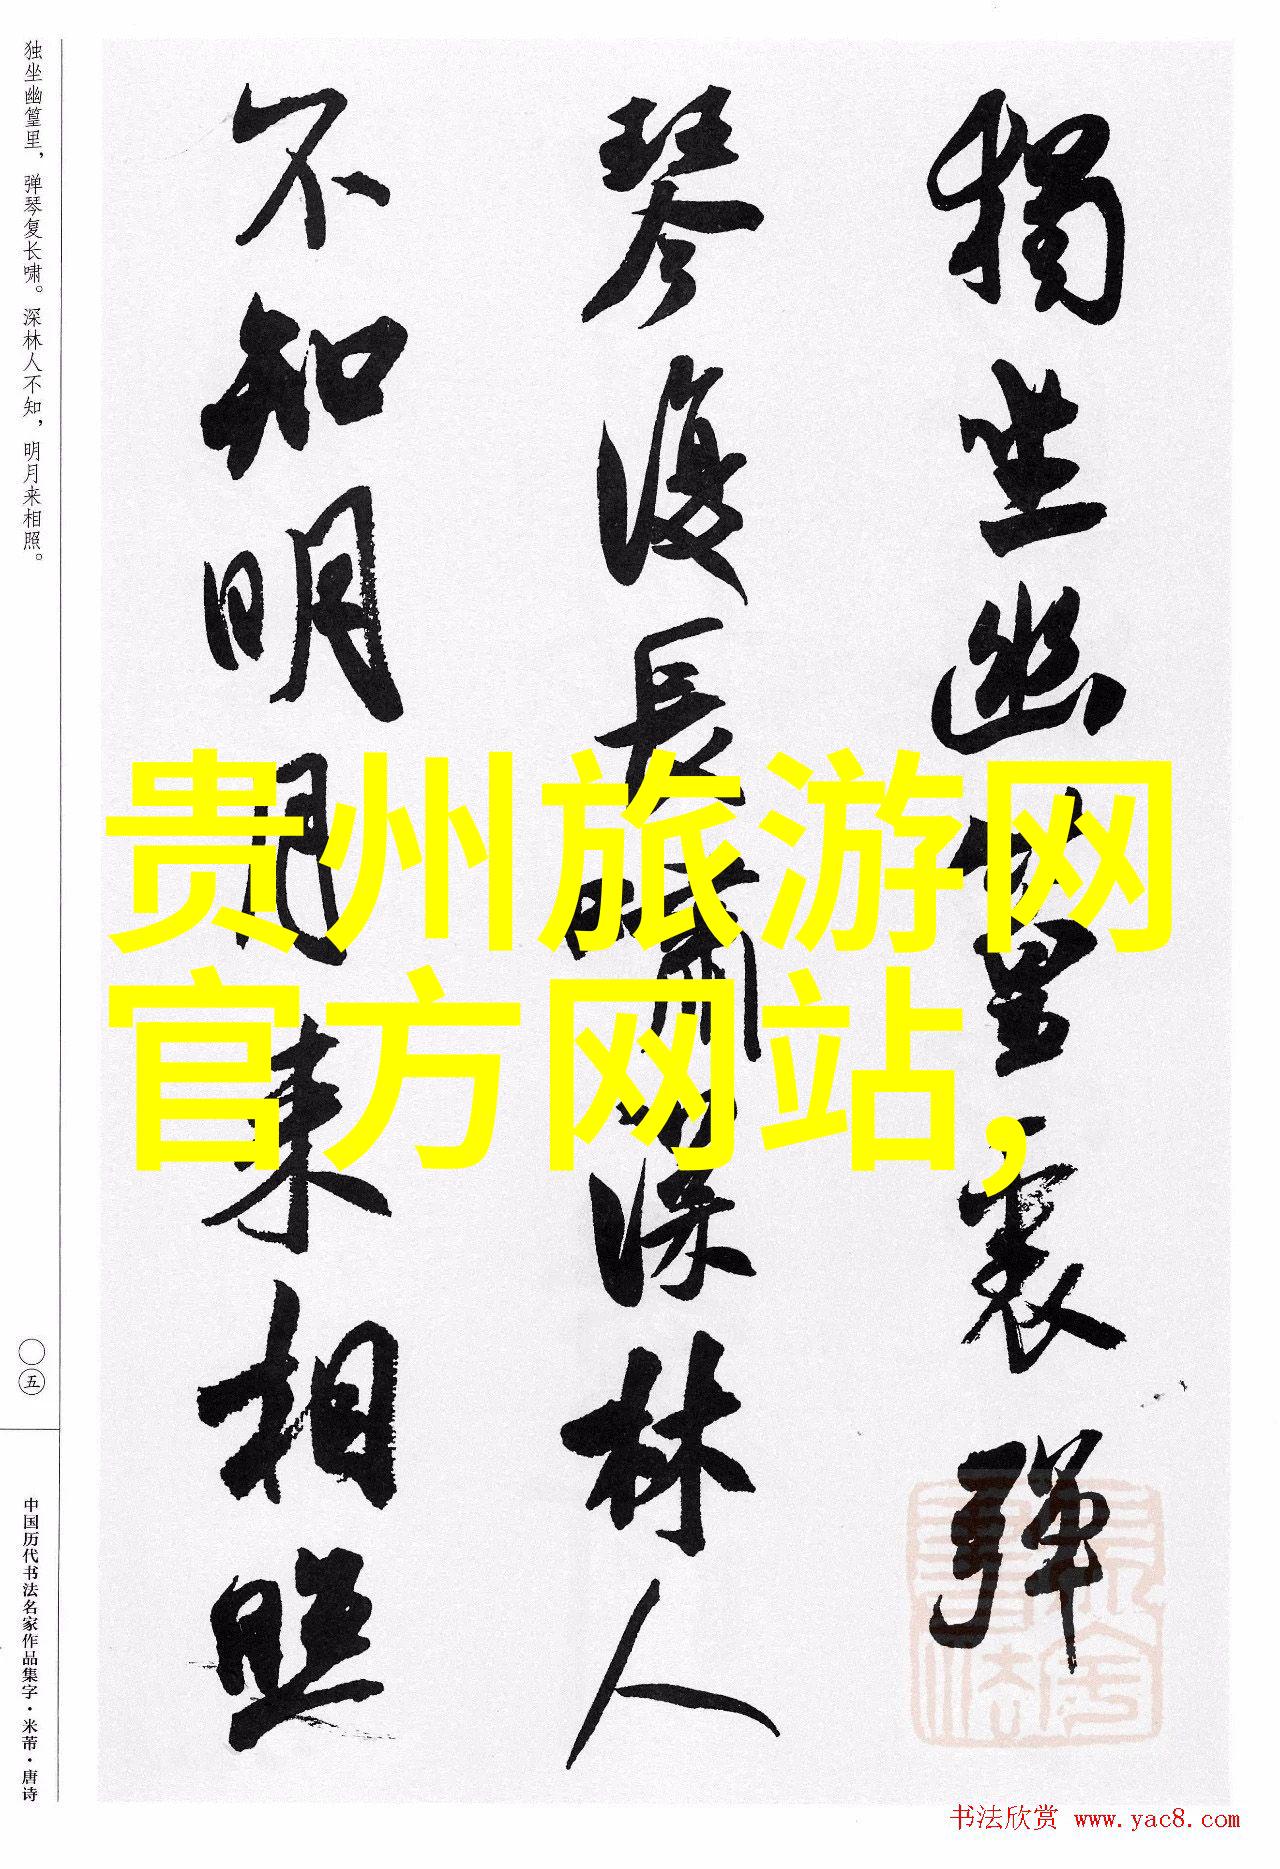 独坐幽篁里，弹琴复长啸。深林人不知，明月来相照。
獨坐幽篁裏彈
琴復長嘯深林人
不知明月来相照
贵州旅游网
官方网站，
〇五
中国历代书法名家作品集字·米芾·唐诗
书法欣赏 www.yac8.com